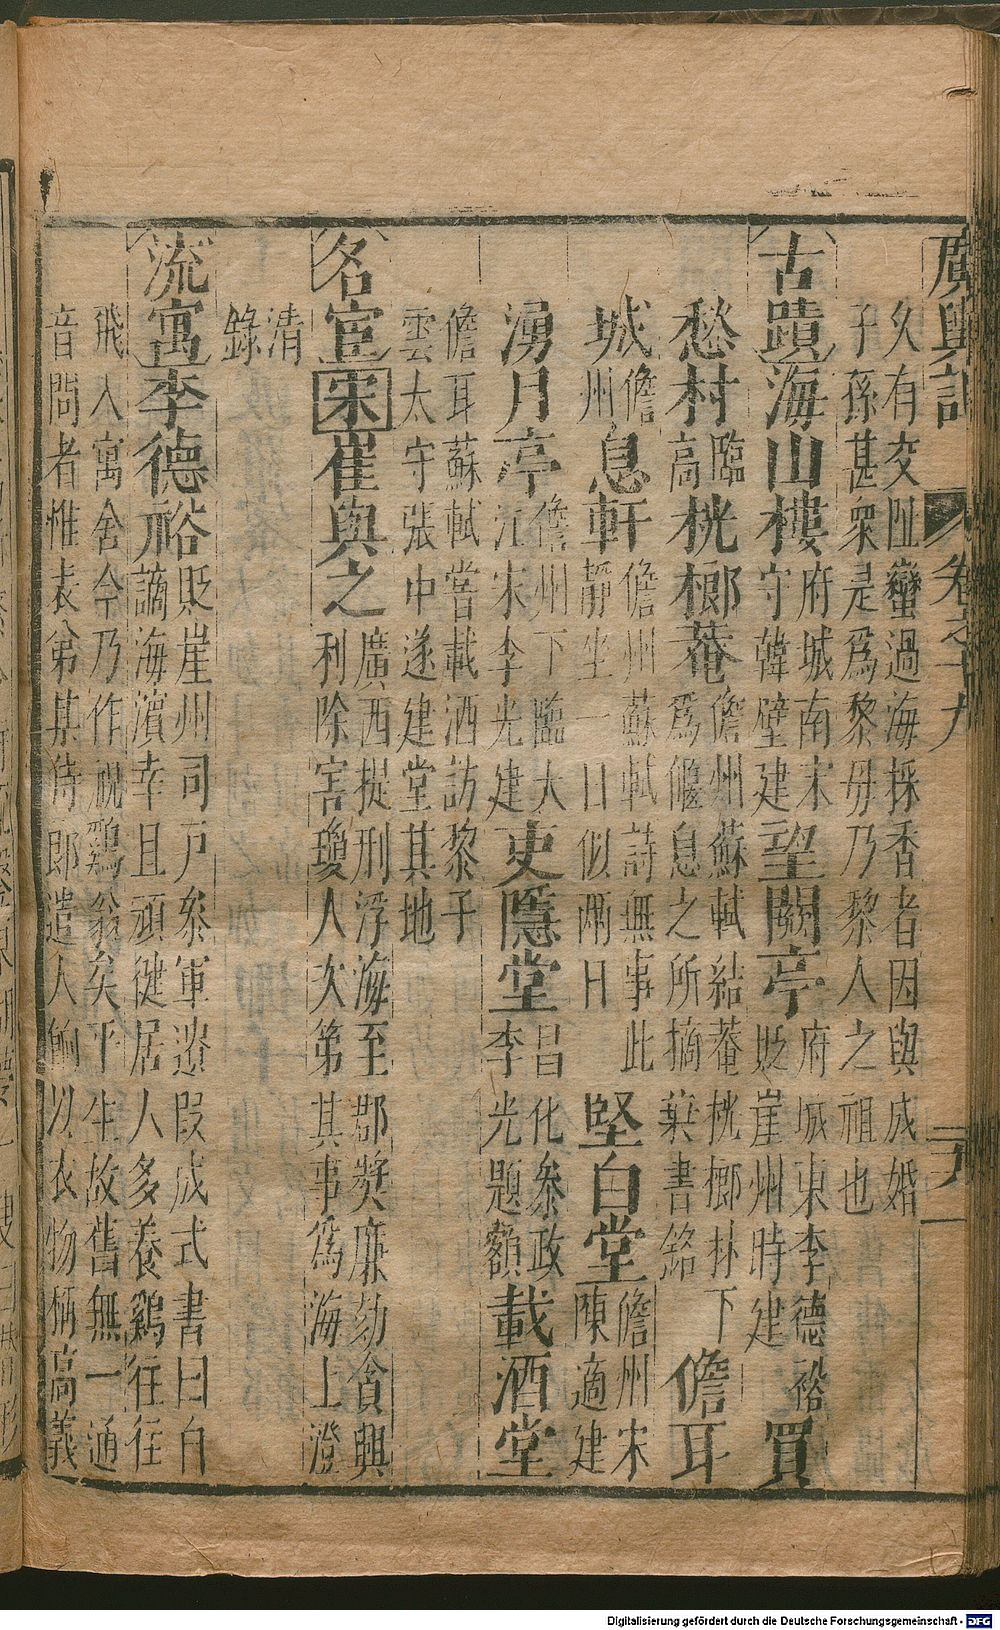 廣輿記 卷之十九
久有交阯蠻過海採香者因與成婚
子孫甚衆是爲黎母乃黎人之祖也
古蹟 海山樓 府城南宋
守韓壁建 望闕亭 府城東李德裕
貶崖州時建 買
愁村 臨
高 桄榔菴 儋州蘇軾結菴桄榔林下
爲偃息之所摘葉書銘 儋耳
城 儋
州 息軒 儋州蘇軾詩無事此
靜坐一日似兩日 堅白堂 儋州宋
陳適建
湧月亭 儋州下臨大
江宋李光建 吏隱堂 昌化參政
李光題額 載酒堂
儋耳蘇軾嘗載酒訪黎子
雲太守張中遂建堂其地
名宦 宋 崔與之 廣西提刑浮海至郡獎廉劾貪興
利除害瓊人次第其事爲海上澄
清
錄
流寓 李德裕 貶崖州司戶參軍遺段成式書曰自
謫海濱幸且頑健居人多養鷄往往
飛入寓舍今乃作祝鷄翁矣平生故舊無一通
音問者惟表弟某侍郎遣人餉以衣物柄高義
Digitalisierung gefördert durch die Deutsche Forschungsgemeinschaft - DFG